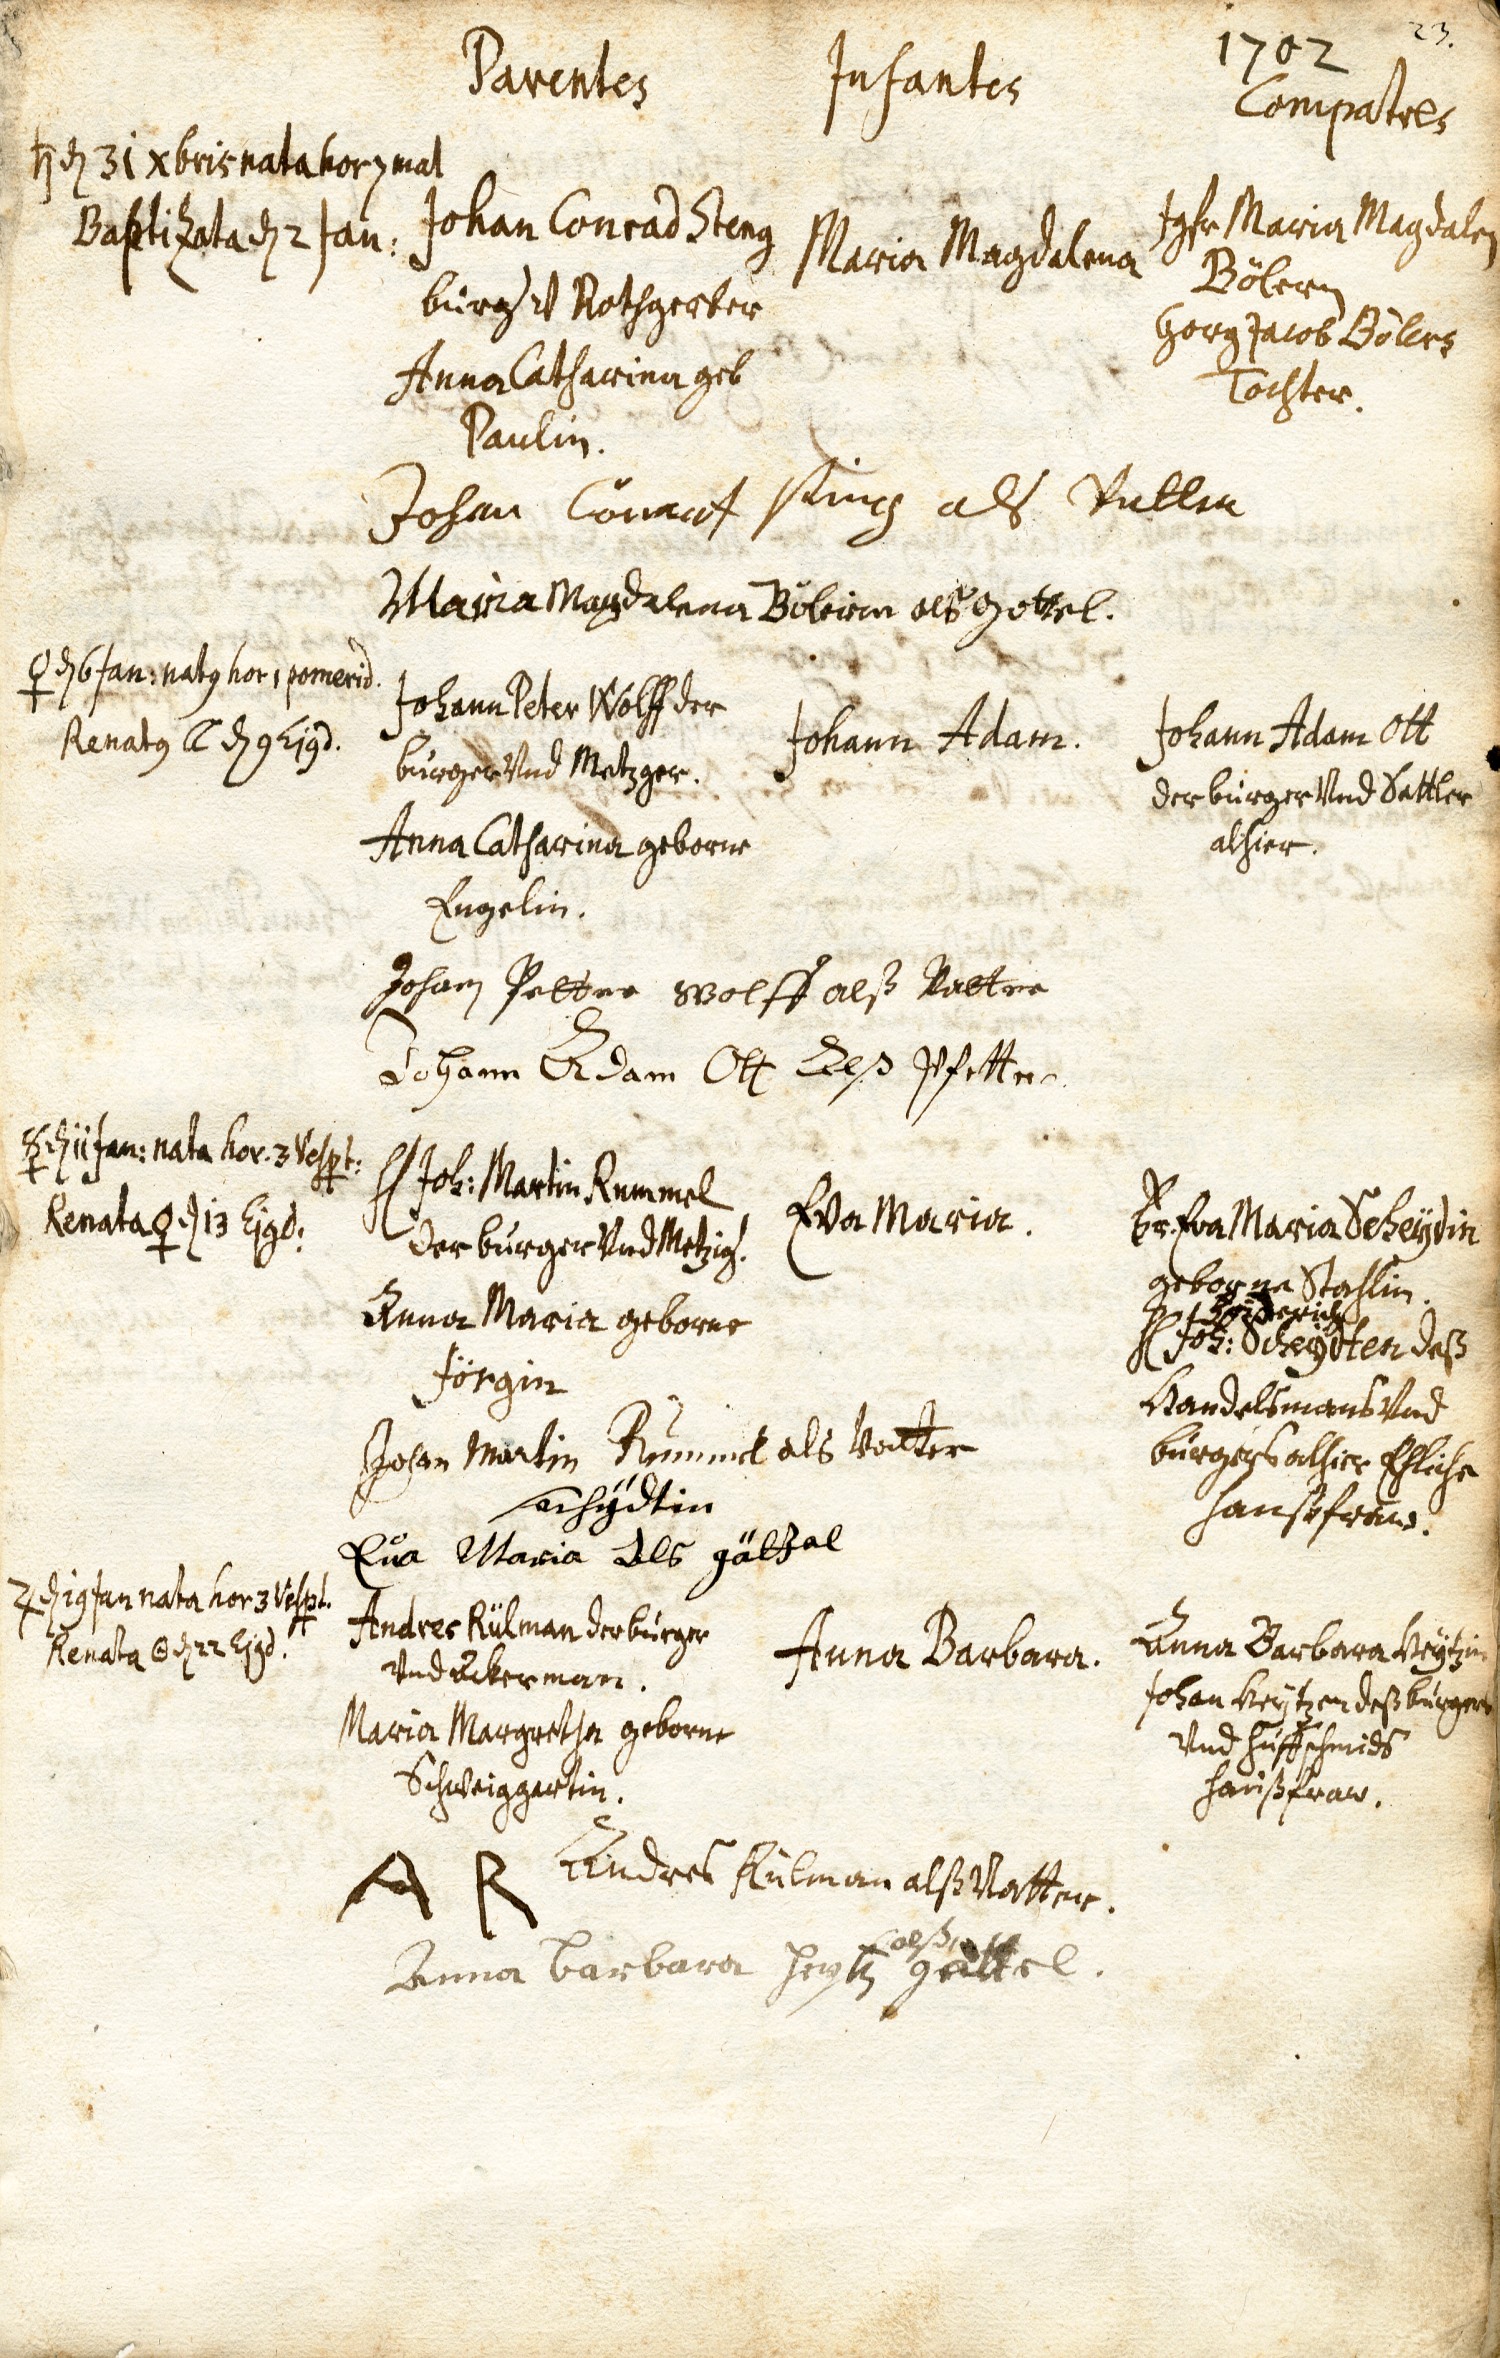 23.
1702
Parentes Infantes Compatres
♄ dn 31 Xbris nata hor 7 mat
Baptizata dn 2 Jan:
Johan Conrad Steng
burger v Rothgerber
Anna Catharina geb
Paulin.
Maria Magdalena
Jgfr Maria Magdalen
Bölern
Georg Jacob Bölers
Tochter.
Johan Conrat als Vatter
Maria Magdalena Bölerin als Gottel.
♀ dn 6 Jan: natq hor 1 pomerid.
Renatq ☾ dn 9 Ejqd.
Johann Peter Wolff der
burger Vnd Metzger.
Anna Catharina geborne
Engelin.
Johann Adam.
Johann Adam Ott
der burger Vnd Sattler
alhier.
Johann Petter Wolff alß Vatter
Johann Adam Ott Alß Pfetter
☿ dn 11 Jan: nata hor. 3 Vespt:
Renata ♀ dn 13 Ejqd:
H Joh: Martin Rummel
der burger Vnd Metzig.
Anna Maria geborne
Jörgin
Eva Maria.
Fr. Eva Maria Scheydin
geborne Stahlin.
Friderich
H Joh: Scheydten deß
Handelsmans Vnd
burgers alhier Ehliche
haußfraw.
Johan Martin Rummel als Vatter
schÿdtin
Eua Maria Als göttel
♃ dn 19 Jan nata hor 3 Vespt.
Renata ☉ dn 22 Ejqd.
Andres Külman der burger
Vnd Ackerman.
Maria Margretha geborne
Schweiggertin.
Anna Barbara.
Anna Barbara Heytzin
Johan Heytzen deß burgers
Vnd huffschmids
haußfraw.
A R Andres Külman alß Vatter.
alß
Anna barbara heytz göttel.